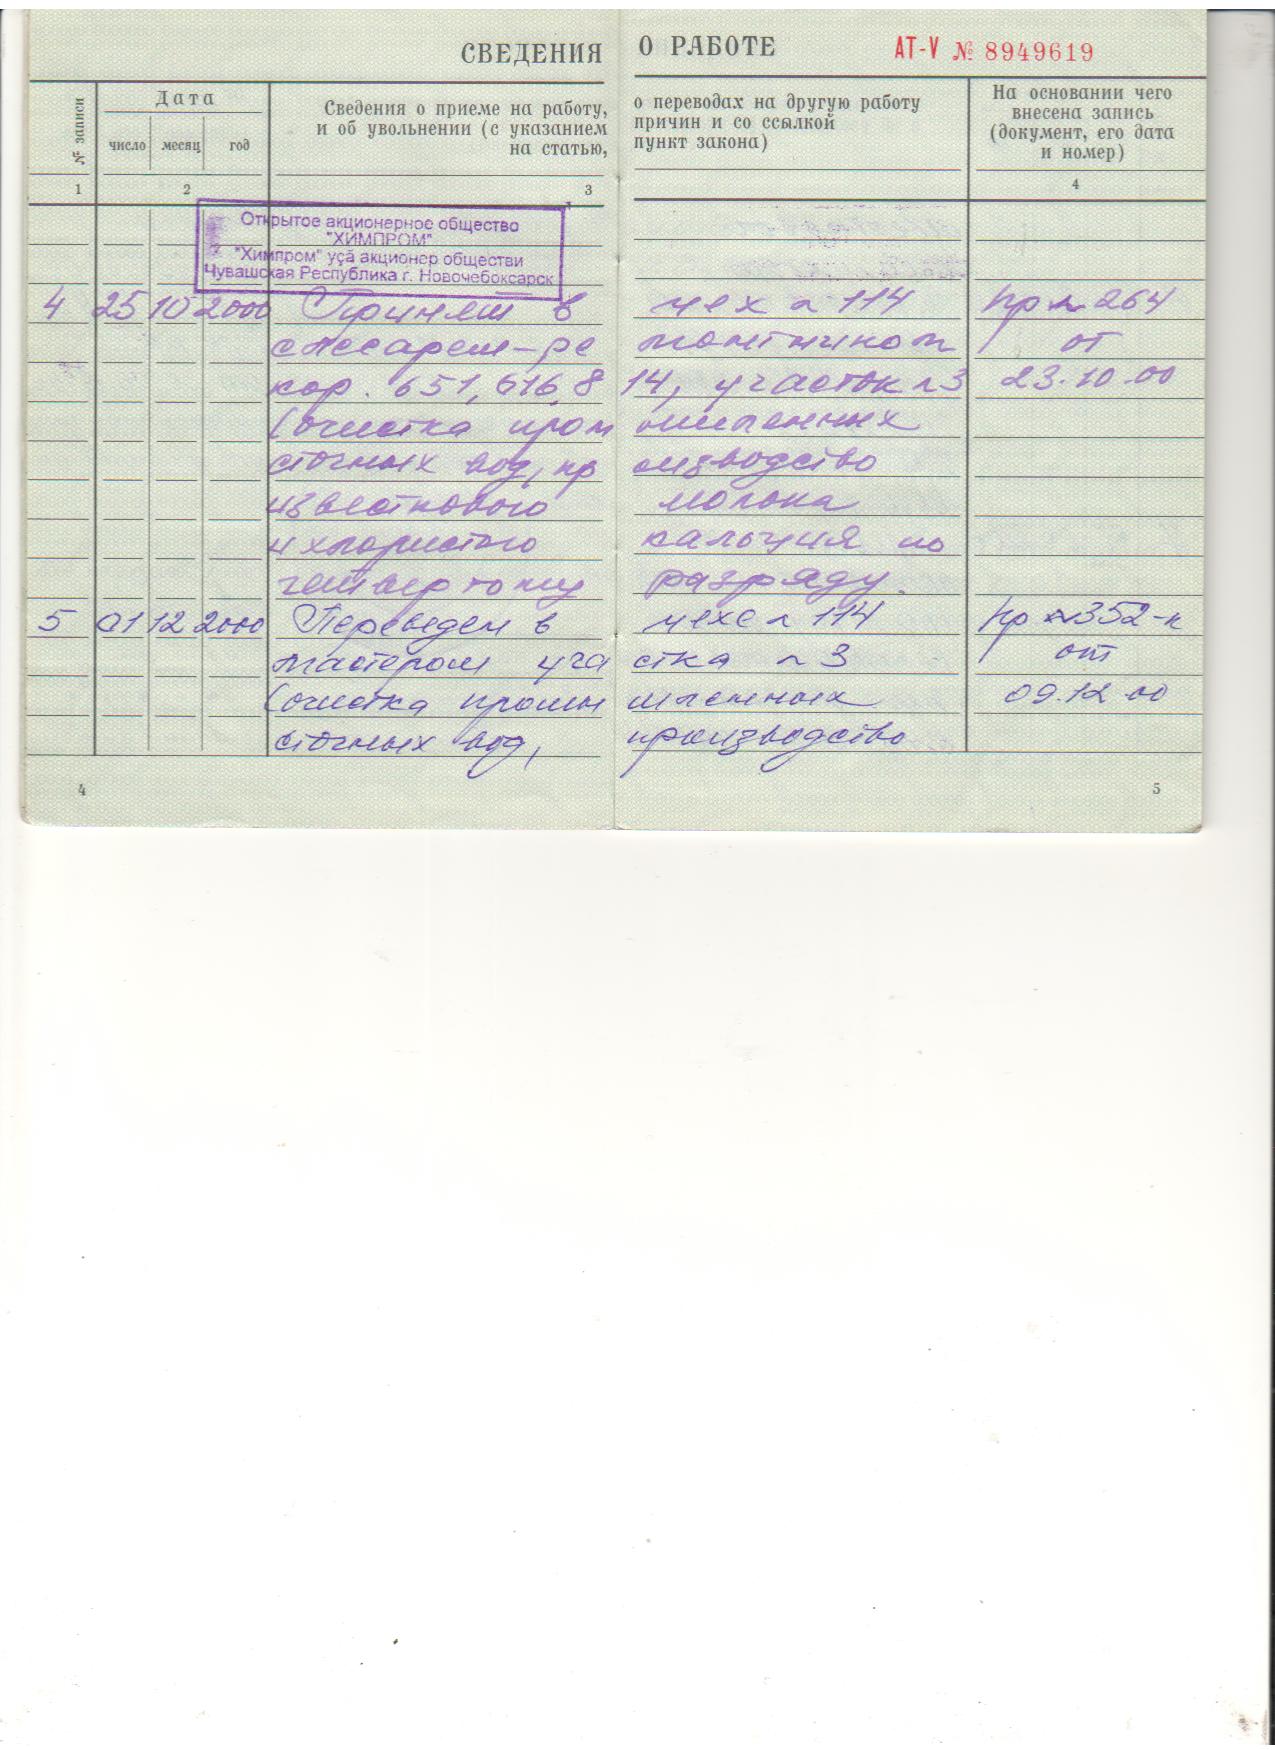 СВЕДЕНИЯ О РАБОТЕ AT-V № 8949619
№ записи
Дата
число месяц год
Сведения о приеме на работу, о переводах на другую работу
и об увольнении (с указанием причин и со ссылкой
на статью, пункт закона)
На основании чего
внесена запись
(документ, его дата
и номер)
1 2 3 4
Открытое акционерное общество
"ХИМПРОМ"
"Химпром" уçă акционер обществи
Чувашская Республика г. Новочебоксарск
4 25 10 2000 Принят в цех № 114 пр № 264
слесарем-ремонтником от
кор. 651, 616, 814, участок №3 23.10.00
(очистка промышленных
сточных вод, производство
известкового молока
и хлористого кальция по
четвертому разряду.
5 01 12 2000 Переведен в цехе № 114 пр №352-к
мастером участка №3 от
(очистка промышленных 09.12.00
сточных вод, производство
4 5